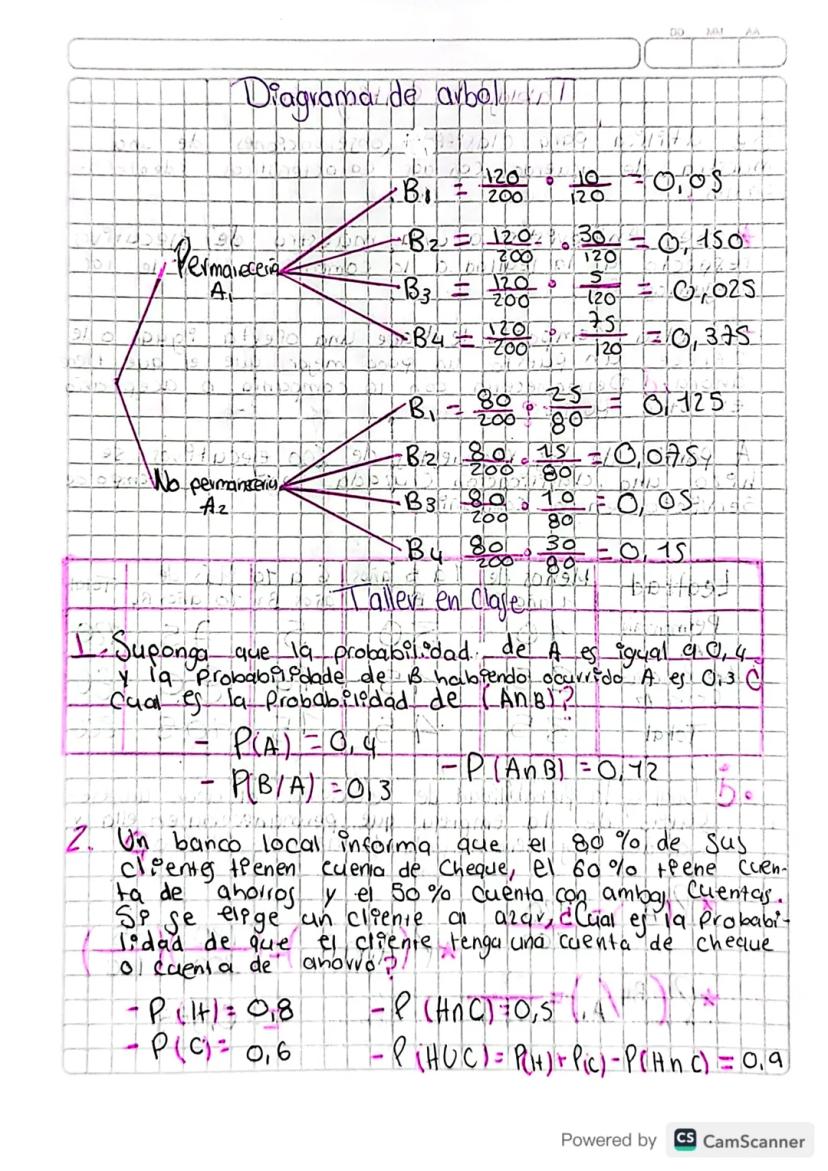 DD MM AA
Diagrama de arbol
B1 = 120/200 · 10/120 = 0,05
B2 = 120/200 · 30/120 = 0,150
Permaneceria
A1
B3 = 120/200 · 5/120 = 0,025
B4 = 120/200 · 75/120 = 0,375
B1 = 80/200 · 25/80 = 0,125
B2 80/200 · 15/80 = 0,075
No permaneceria
A2
B3 80/200 · 10/80 = 0,05
B4 80/200 · 30/80 = 0,15
Taller en clase
1. Suponga que la probabilidad de A es igual a 0,4
y la probabilidade de B habiendo ocurrido A es 0,3 ¿
Cual es la probabilidad de (A∩B)?
- P(A) = 0,4
- P(B/A) = 0,3
- P(A∩B) = 0,12
2. Un banco local informa que el 80% de sus
clientes tienen cuenta de cheque, el 60% tiene cuen-
ta de ahorros y el 50% cuenta con ambas cuentas.
Si se elige un cliente al azar, ¿Cual es la probabi-
lidad de que el cliente tenga una cuenta de cheque
o cuenta de ahorro?
- P(H) = 0,8 - P(H∩C) = 0,5
- P(C) = 0,6 - P(HUC) = P(H) + P(C) - P(H∩C) = 0,9
Powered by CS CamScanner